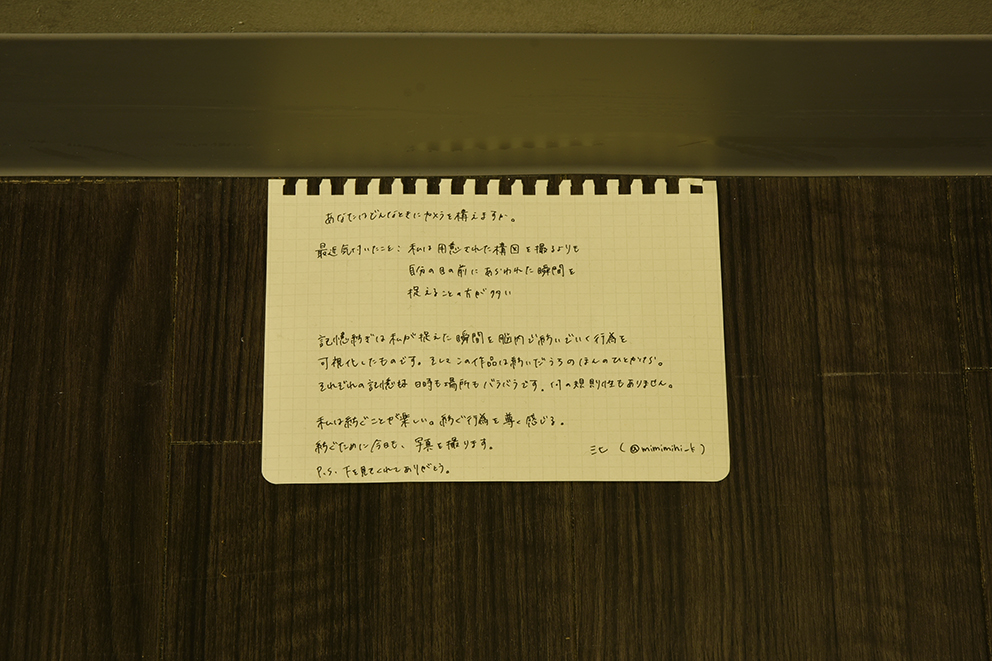 あなたはどんなときにカメラを構えますか。
最近気付いたこと: 私は用意された構図を撮るよりも
自分の目の前にあらわれた瞬間を
捉えることの方が多い
記憶紡ぎは私が捉えた瞬間を脳内で紡いでいく行為を
可視化したものです。そしてこの作品は紡いだうちのほんのひとかけら。
それぞれの記憶は日時も場所もバラバラです。何の規則性もありません。
私は紡ぐことが楽しい。紡ぐ行為を尊く感じる。
紡ぐために今日も、写真を撮ります。
(@mimimihi_k)
P.S. 下を見てくれてありがとう。